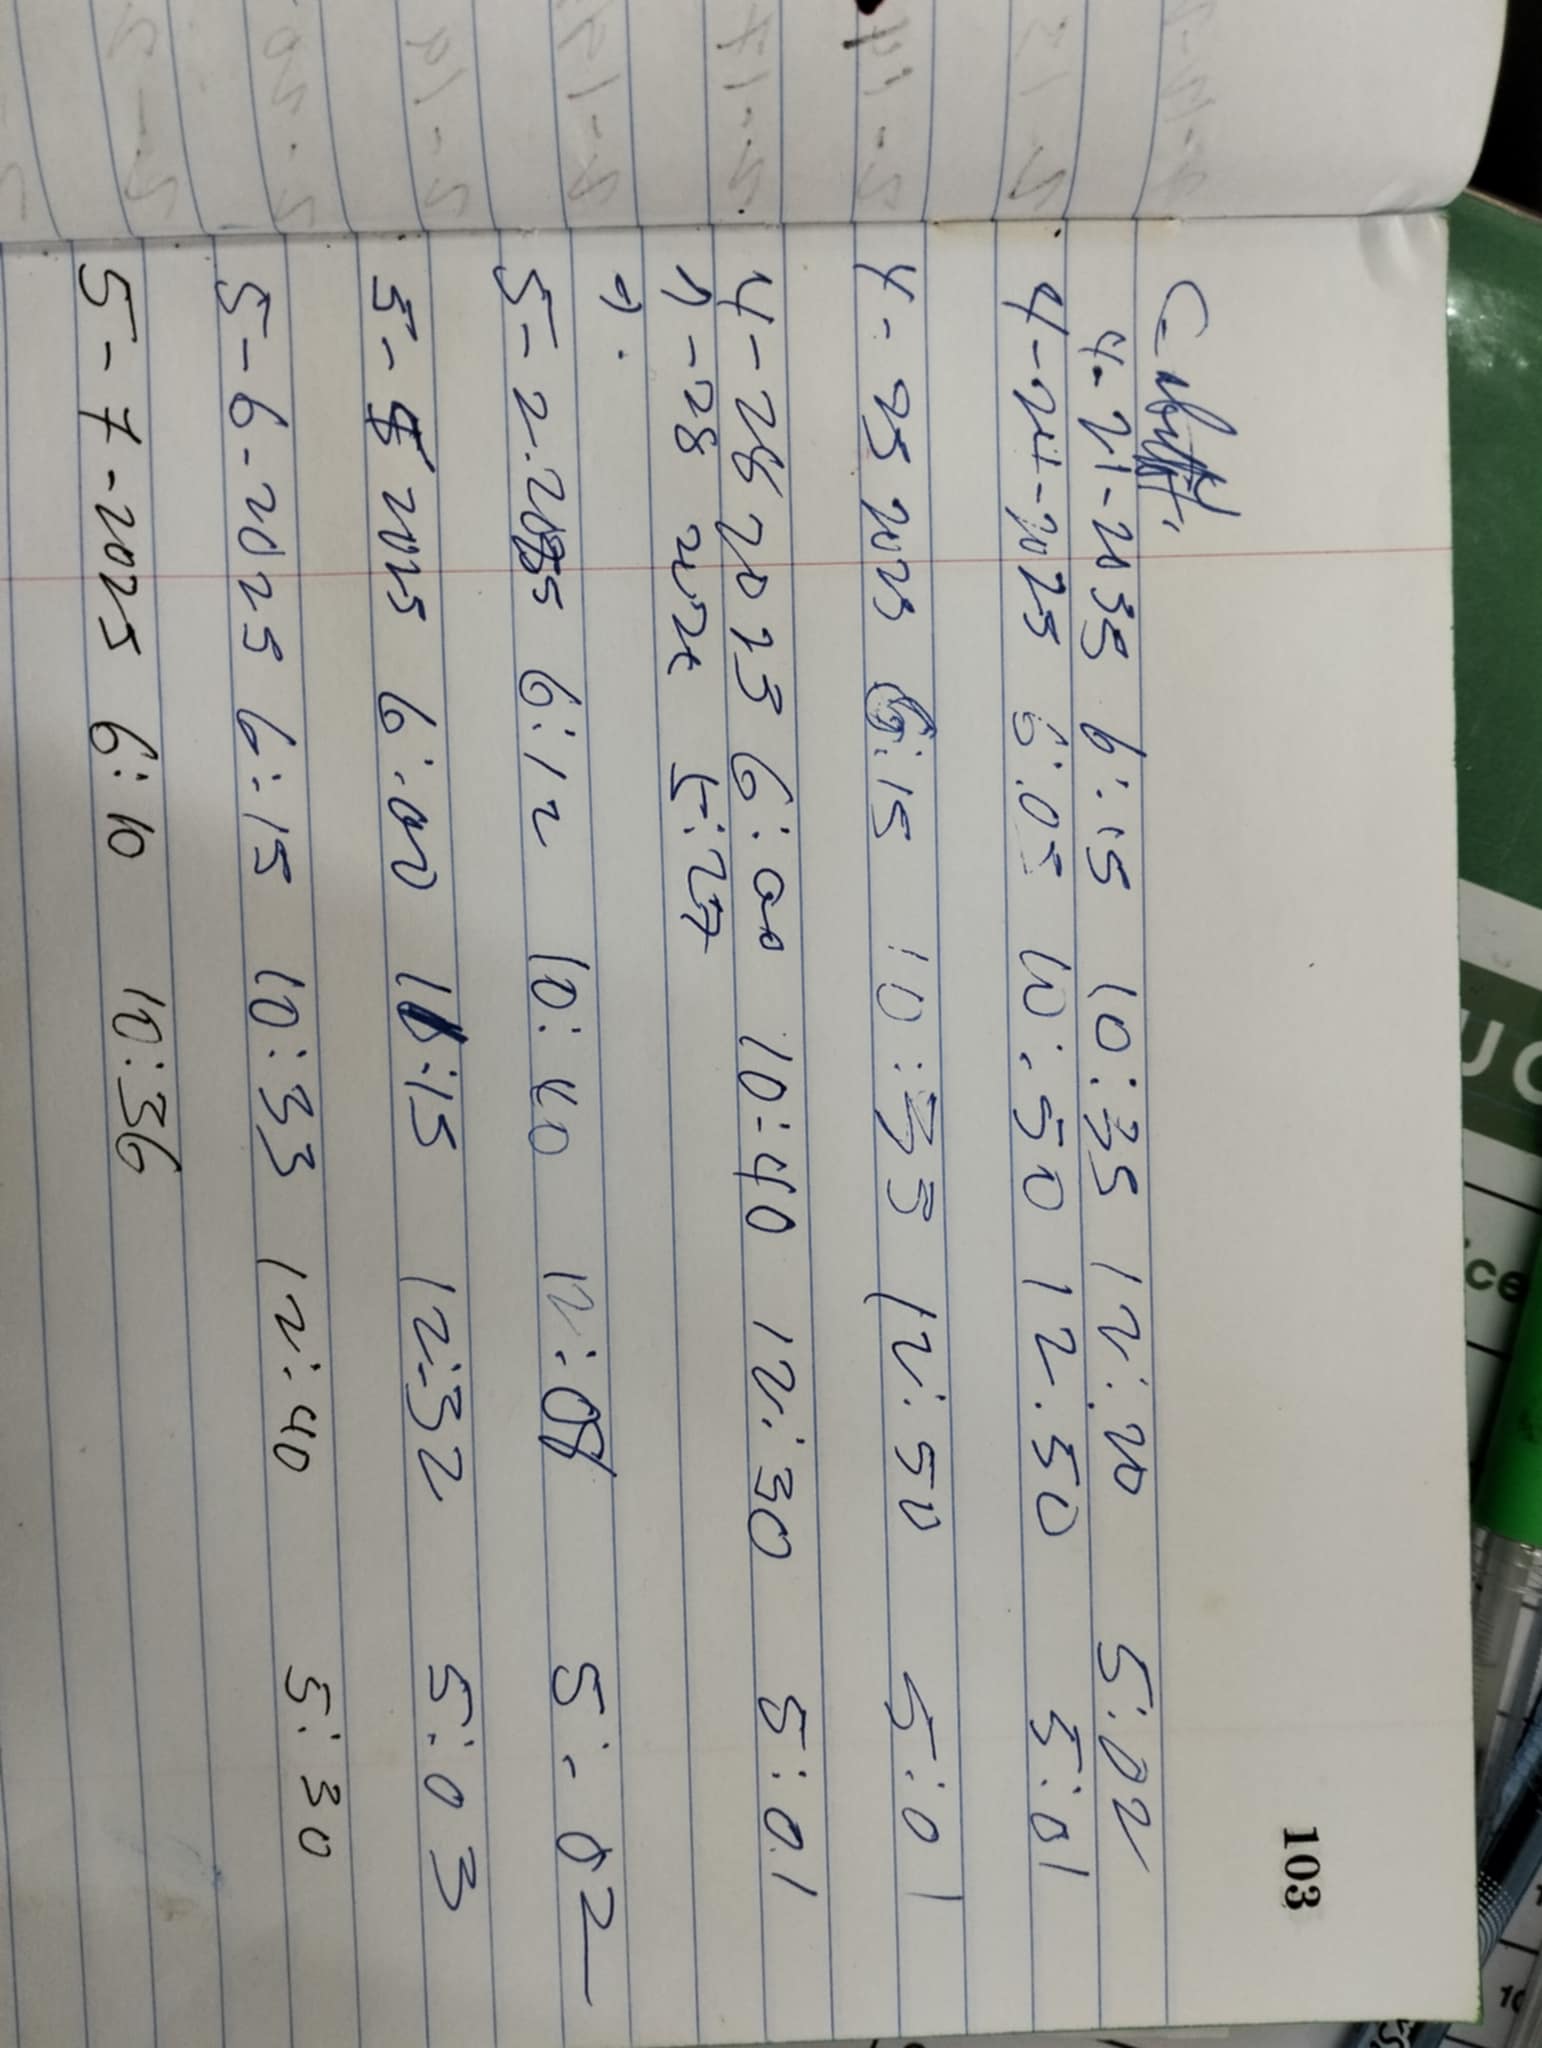 103
4-21-2035 6:15 10:35 12:20 5:02
4-24-2025 6:05 10:50 12.50 5:01
4-25 2025 6:15 10:33 12:50 5:01
4-28 2023 6:00 10:40 12:30 5:01
-28 5:27
5-2.2025 6:12 10:40 12:08 5:02
5-5 2025 6:00 11:15 12:32 5:03
5-6-2025 6:15 10:33 12:40 5:30
5-7-2025 6:10 10:36
ce